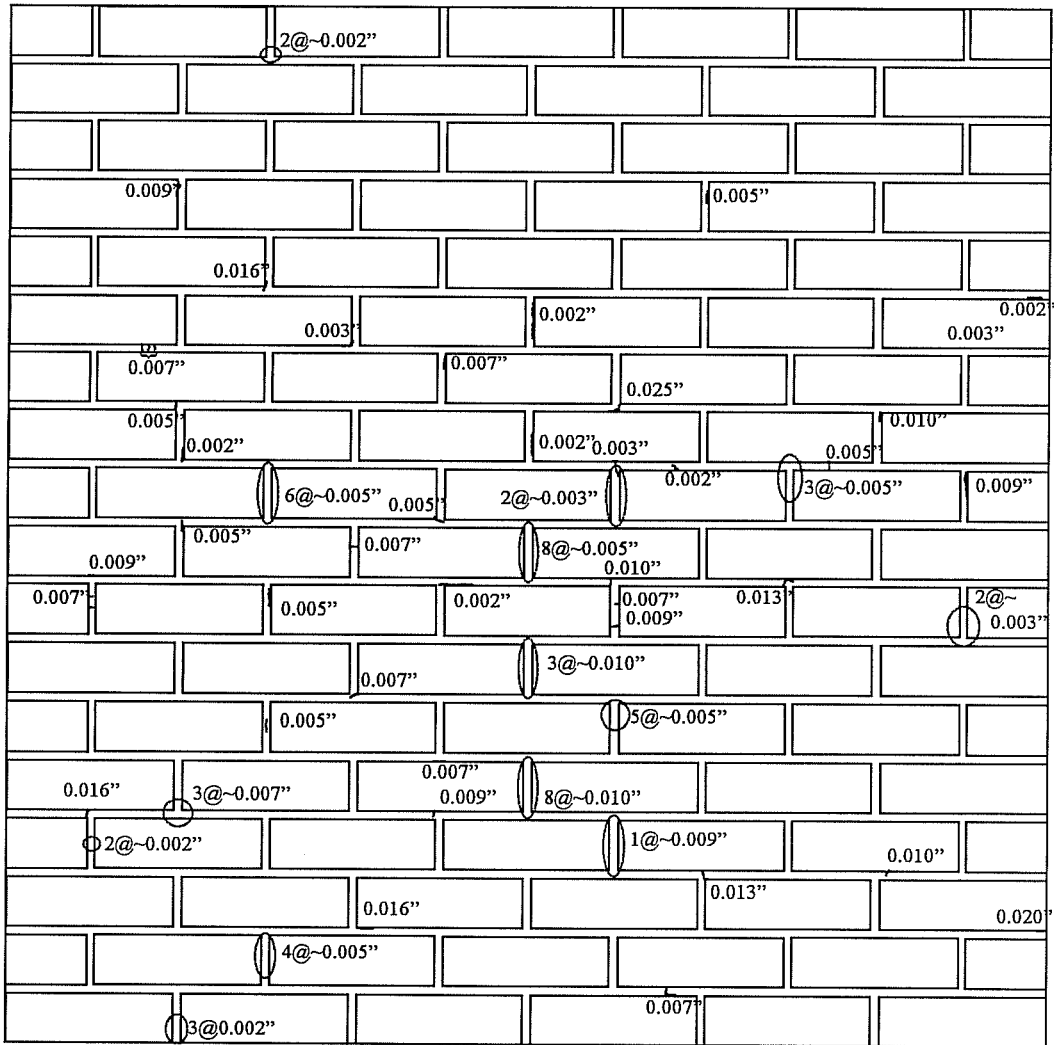 2@~0.002”
0.009”
0.005”
0.016”
0.002”
0.002”
0.003”
0.003”
0.007”
0.007”
0.025”
0.005”
0.010”
0.002”
0.002”
0.003”
0.005”
0.002”
6@~0.005”
0.005”
2@~0.003”
3@~0.005”
0.009”
0.005”
0.007”
8@~0.005”
0.009”
0.010”
0.007”
0.005”
0.002”
0.007”
0.013”
2@~
0.003”
0.009”
3@~0.010”
0.007”
0.005”
5@~0.005”
0.007”
0.016”
3@~0.007”
0.009”
8@~0.010”
2@~0.002”
1@~0.009”
0.010”
0.013”
0.016”
0.020”
4@~0.005”
0.007”
3@0.002”